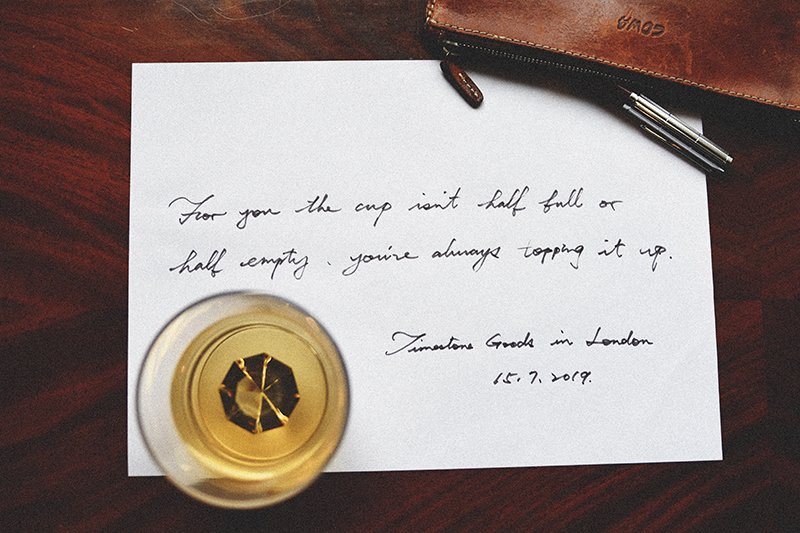 COWA
For you the cup isn't half full or
half empty. you're always topping it up.
Timestone Goods in London
15.7.2019.